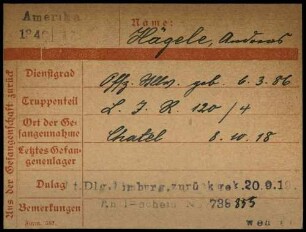 Amerika
Name:
Hägele, Andreas
Aus der Gefangenschaft zurück
Dienstgrad
geb 6.3.86
Truppenteil
L. I. R. 120/4
Ort der Gefangennahme
Chatel 8.10.18
Letztes Gefangenenlager
Dulag
Dlg. Limburg, zurück 20.9.19
Bemerkungen
No 798855